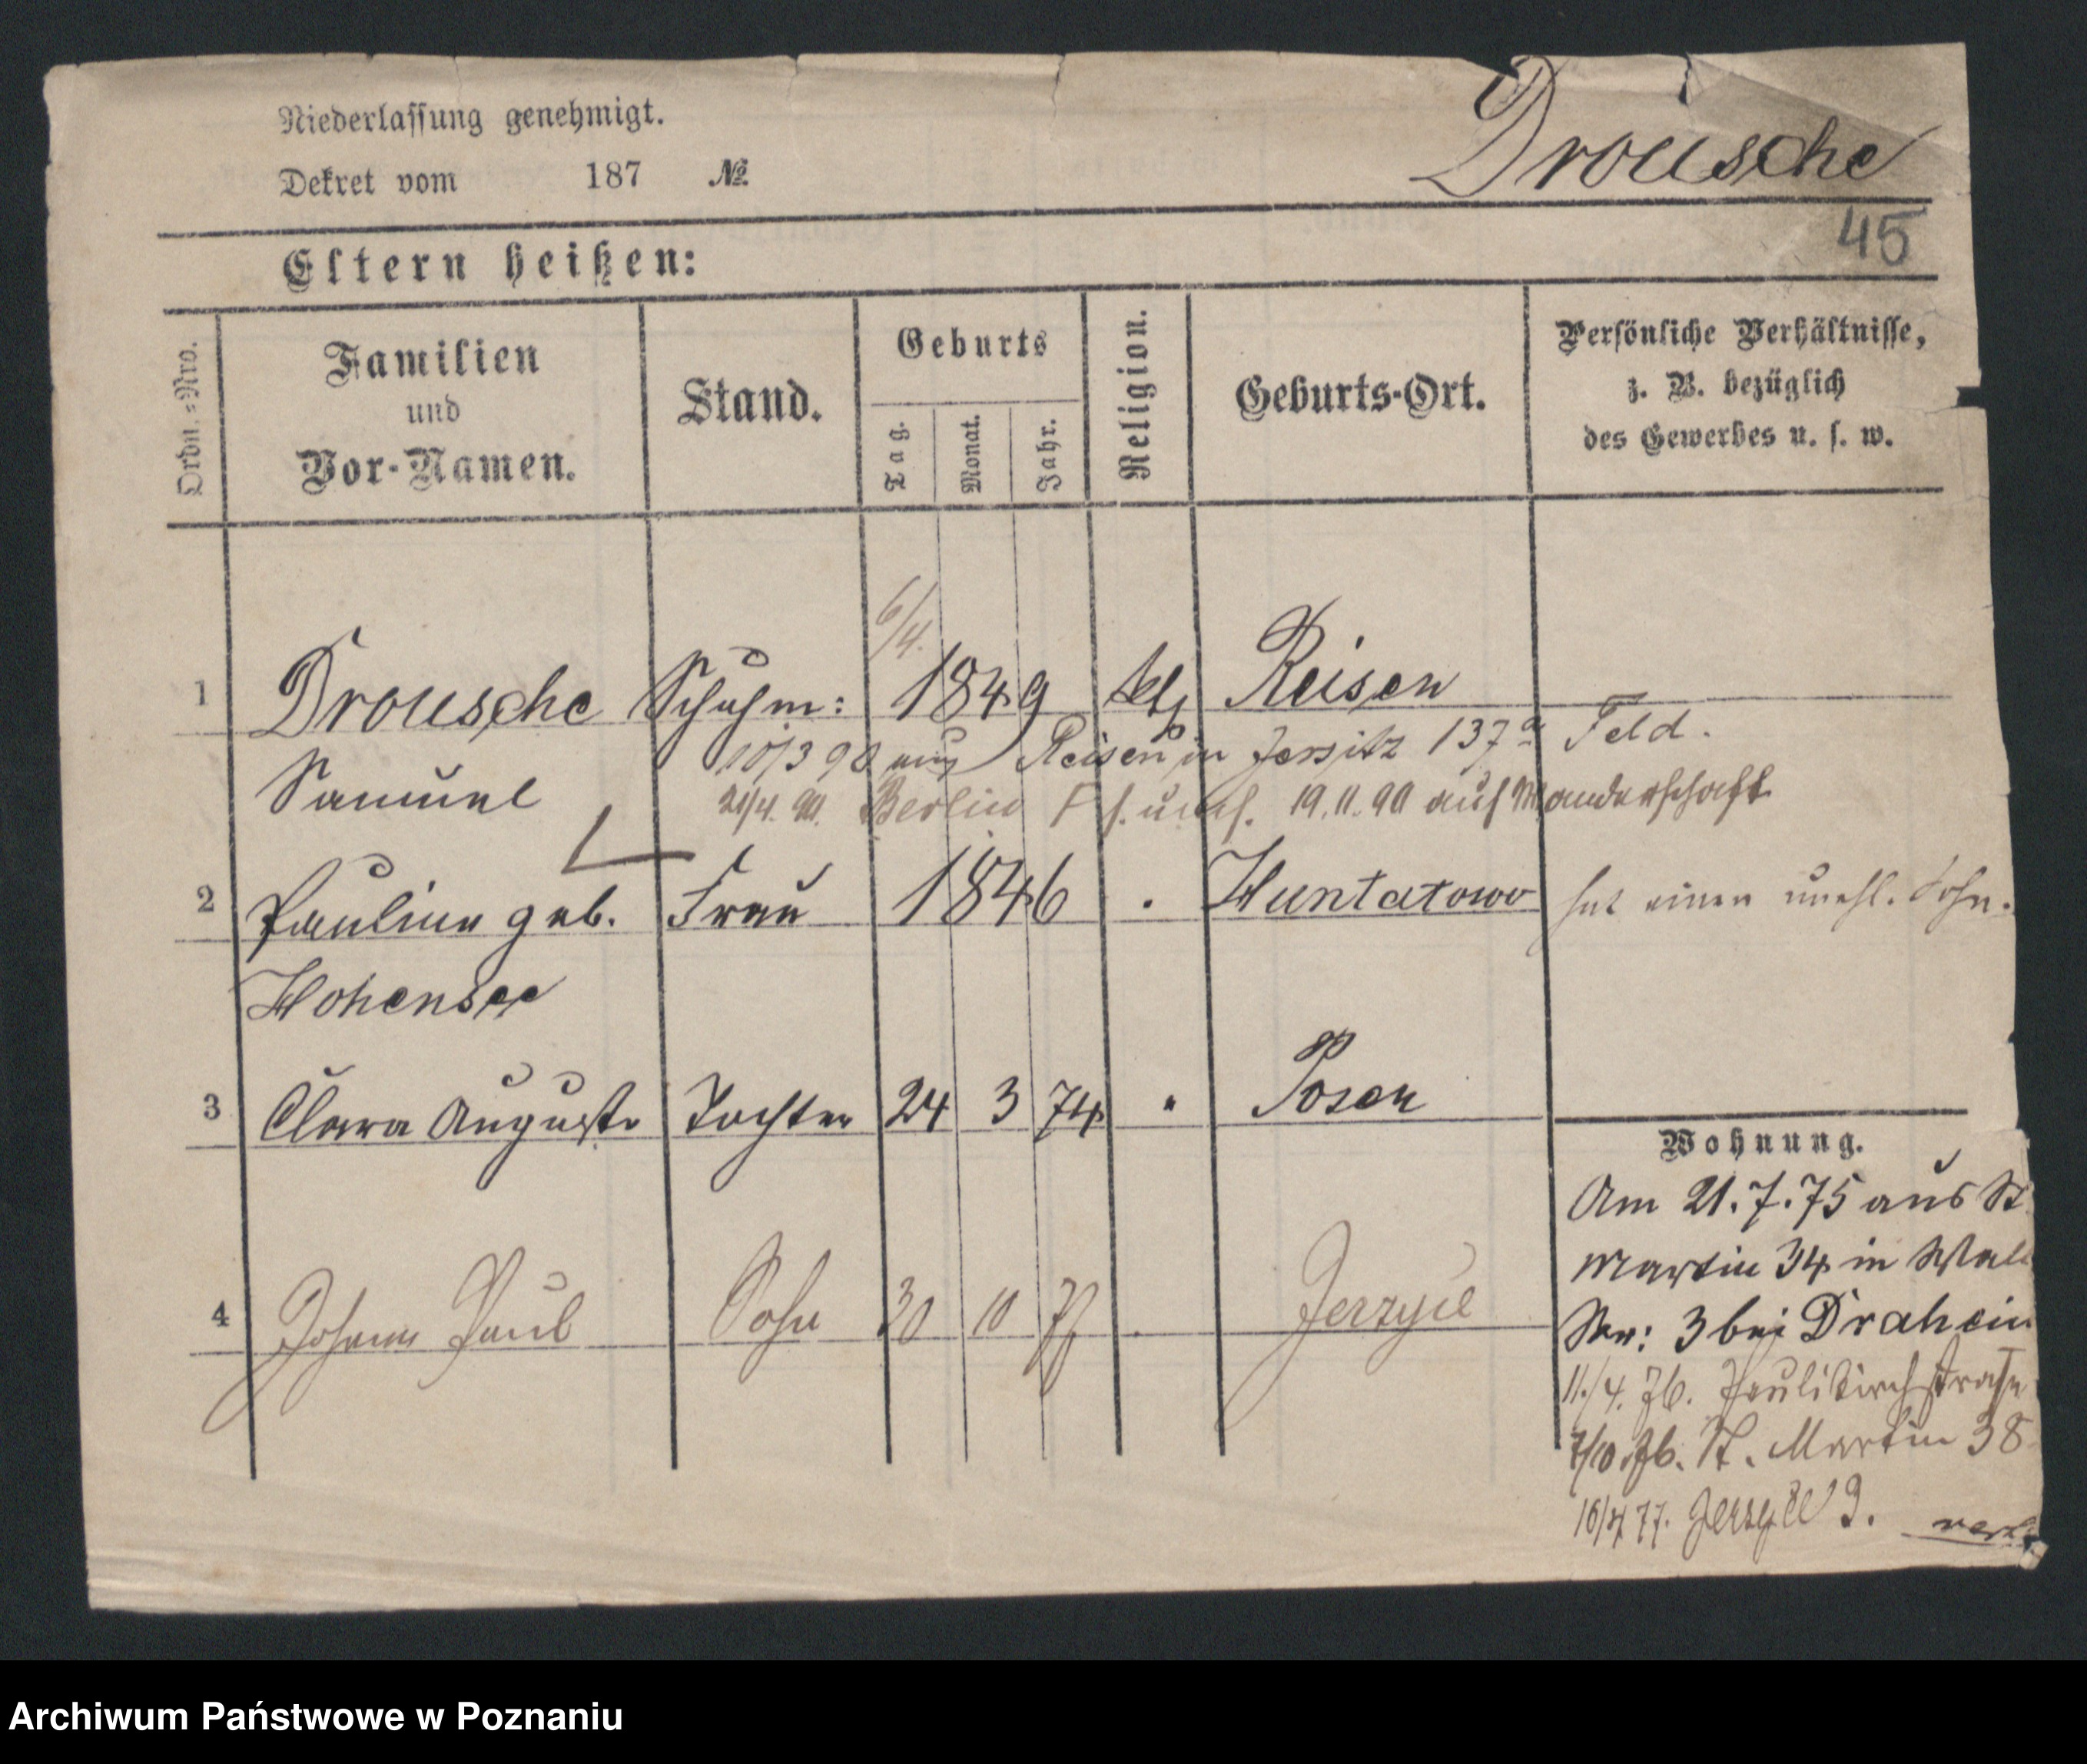 Niederlassung genehmigt.
Dekret vom 187 №
Drousche
45
Eltern heißen:
Ordn.-Nro.
Familien und Vor-Namen.
Stand.
Geburts
Tag.
Monat.
Jahr.
Religion.
Geburts-Ort.
Persönliche Verhältnisse,
z. B. bezüglich
des Gewerbes u. s. w.
6/4.
1 Drousche Schuhm: 1849 Reisen
10/3 90 aus Reisen in Jersitz 137a Feld.
Samuel
Berlin 19.11.90 auf Wanderschaft
2 Pauline geb. Frau 1846 . Huntatowo hat einen unehl. Sohn.
Hohensee
3 Clara Auguste Tochter 24 3 74 " Posen
Wohnung.
Am 21.7.75 aus St
Martin 34 in Wall
4 Johann Paul Sohn 30 10 77 . Jerzyce
Str: 3 bei Drahein
11./4. 76. Paulikirchstraße
7/10 76. St. Martin 38
77. Jerzyce 9.
Archiwum Państwowe w Poznaniu